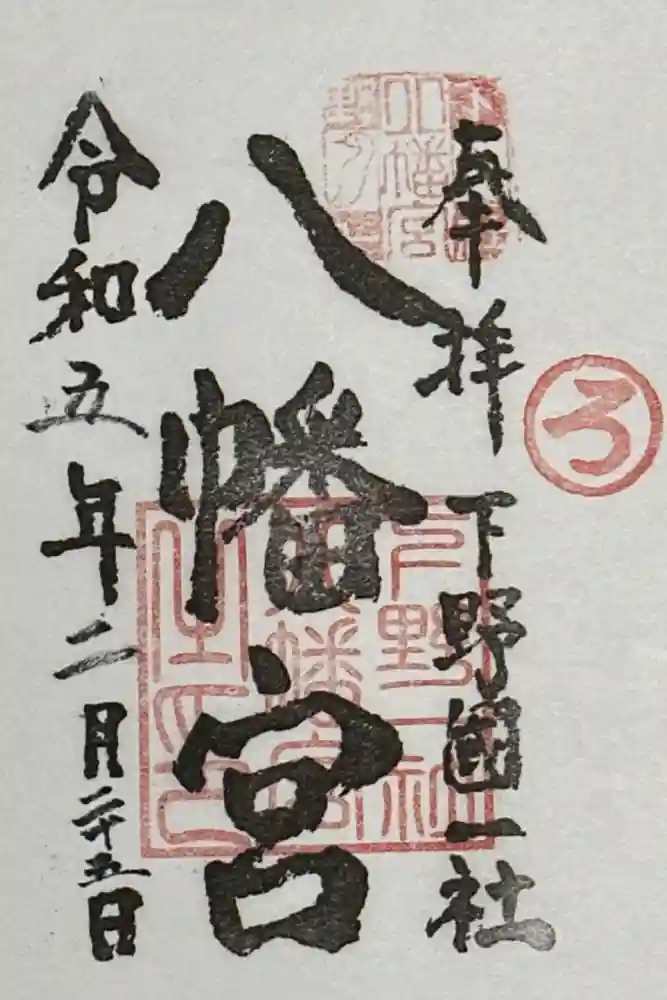 奉拝
下野國一社
ろ
八幡宮
下野一社
八幡宮
之印
令和五年二月二十五日